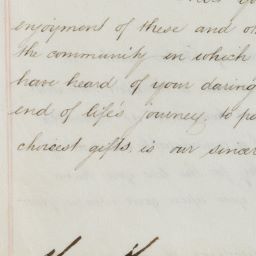 enjoyment of these and
the community in which
have heard of your daring
end of life's journey, to
choicest gifts, is our